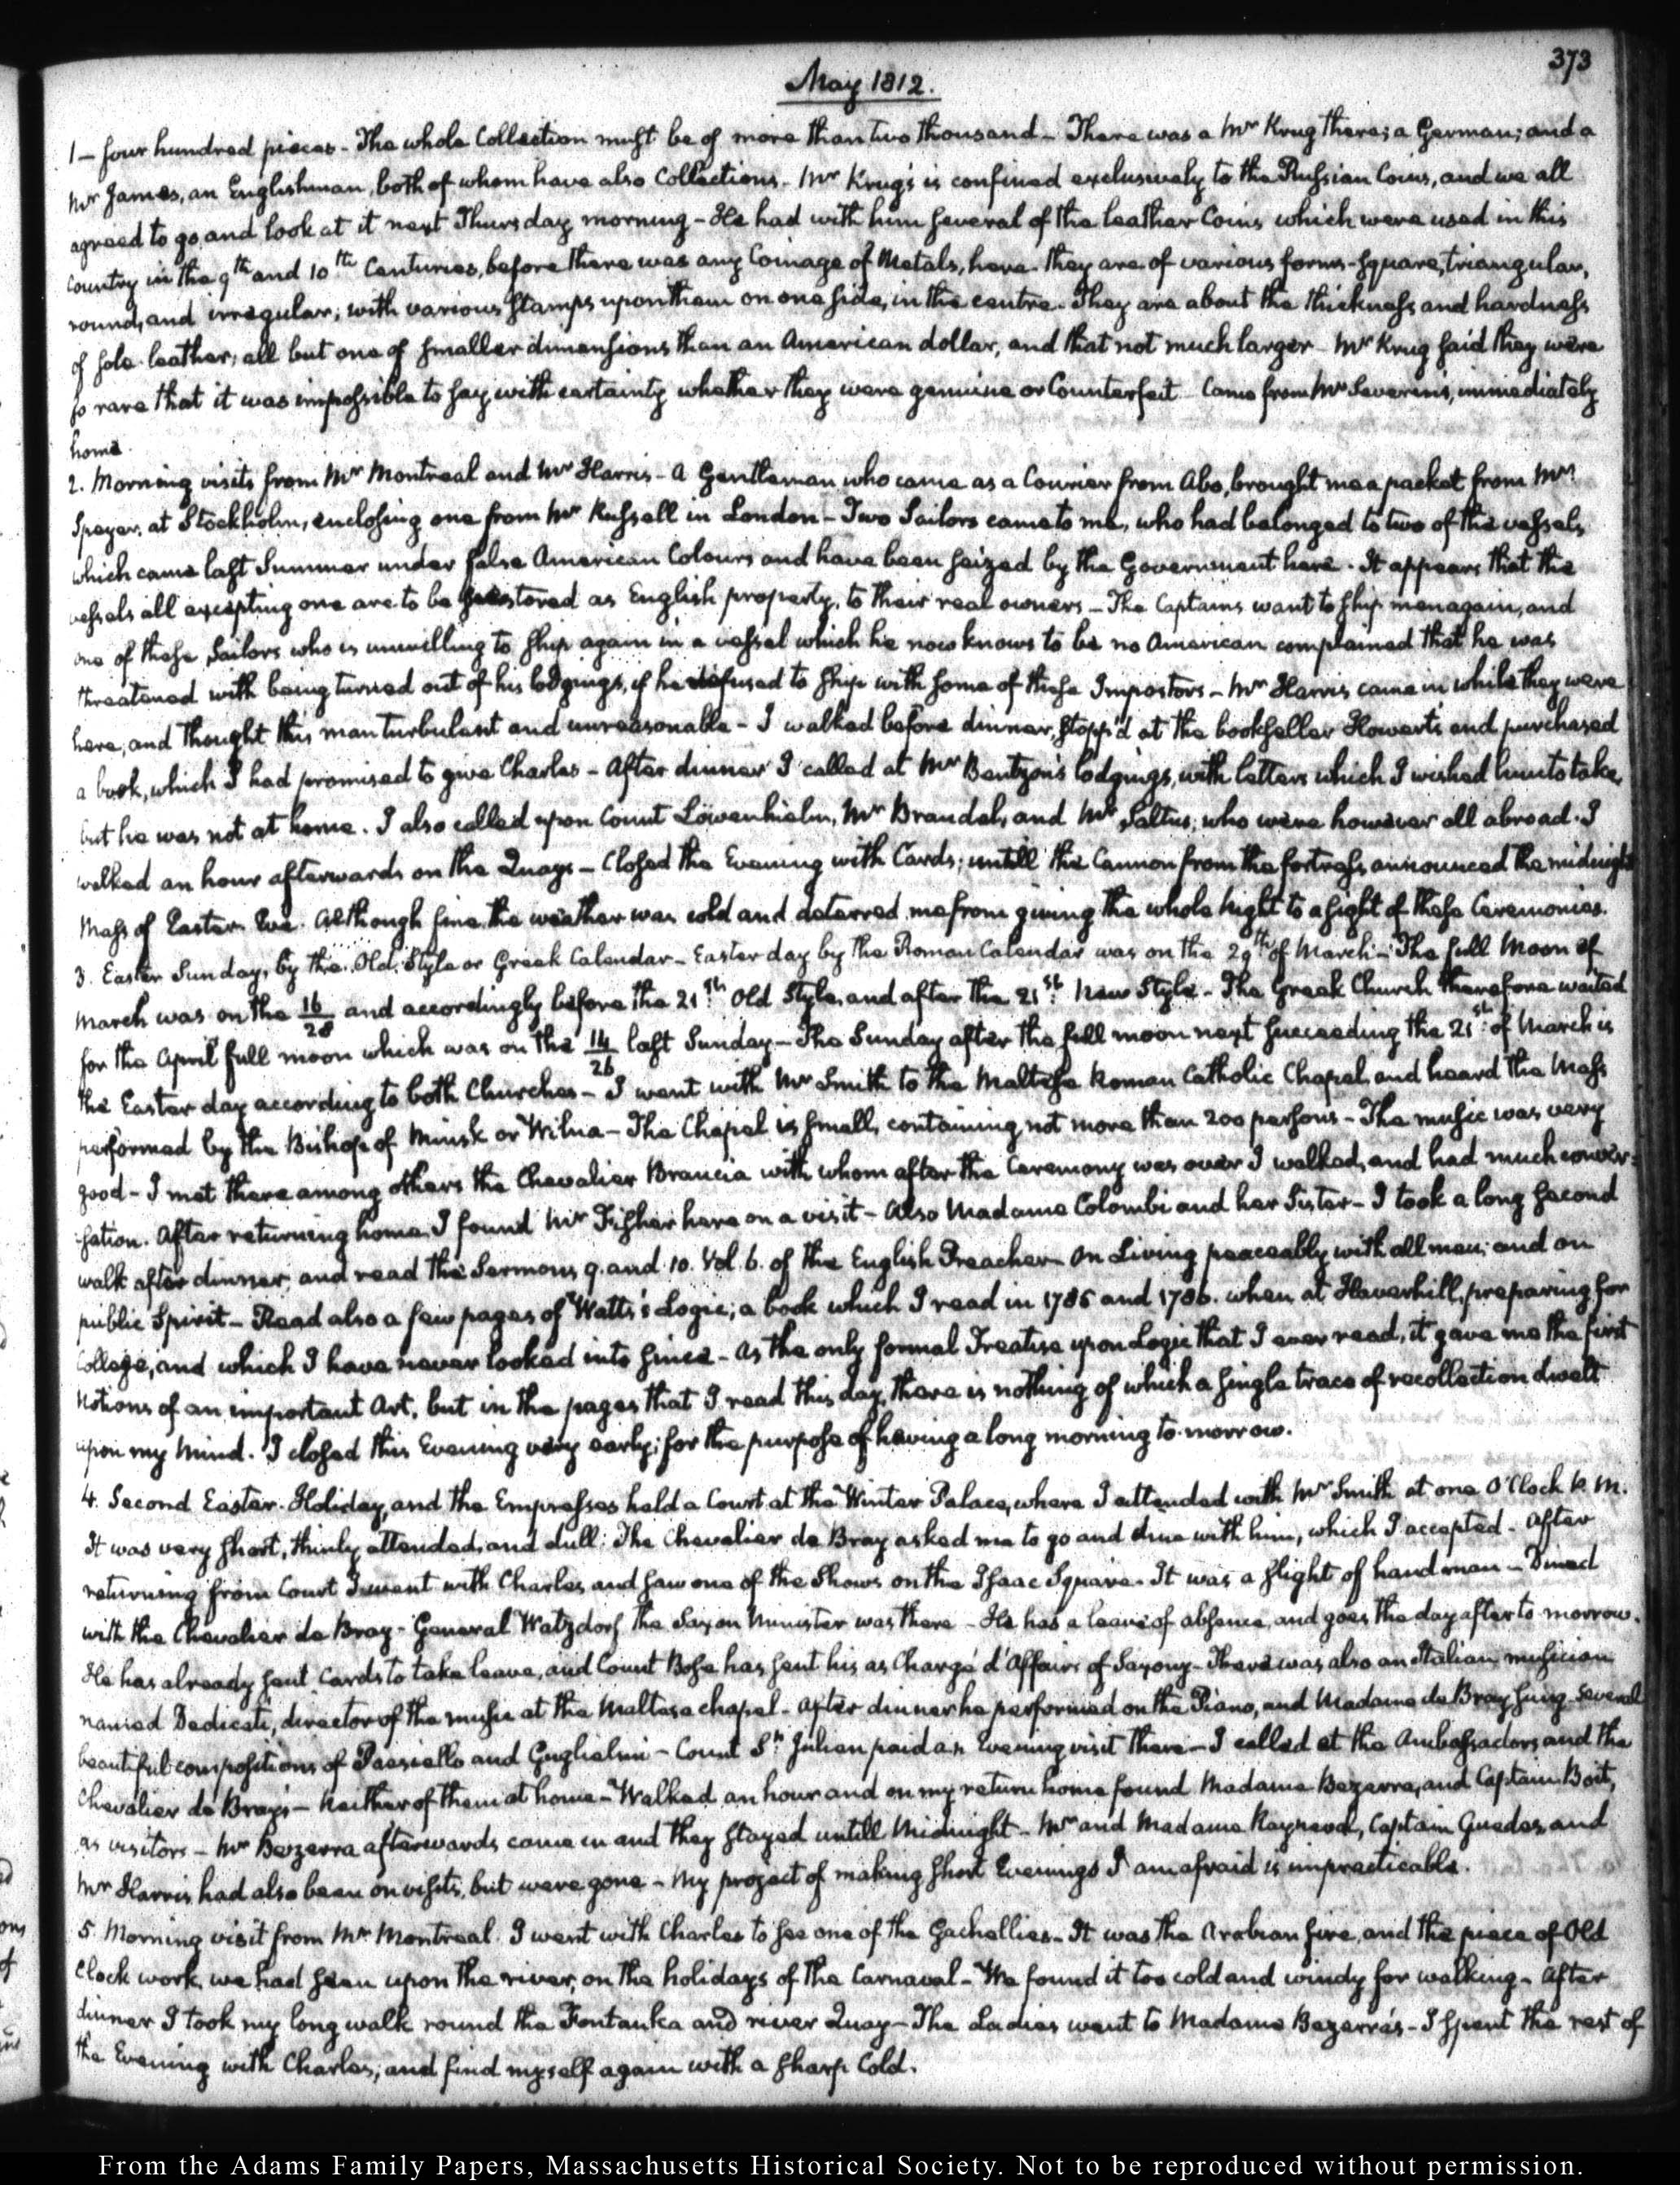 373
May 1812.
1 — four hundred pieces - The whole Collection must be of more than two thousand - There was a Mr Krug there; a German; and a
Mr James, an Englishman, both of whom have also Collections - Mr Krug's is confined exclusively to the Russian Coins, and we all
agreed to go and look at it next Thursday morning - He had with him several of the leather Coins which were used in this
Country in the 9th and 10th Centuries, before there was any Coinage of Metals, here. They are of various forms - square, triangular,
round, and irregular; with various stamps upon them on one side, in the centre. They are about the thickness and hardness
of sole leather, all but one of smaller dimensions than an American dollar, and that not much larger - Mr Krug said they were
so rare that it was impossible to say with certainty whether they were genuine or Counterfeit - Came from Mr Severin's, immediately
home.
2. Morning visits from Mr Montreal and Mr Harris - A Gentleman who came as a Courier from Abo, brought me a packet from Mr
Speyer, at Stockholm, enclosing one from Mr Russell in London - Two Sailors came to me, who had belonged to two of the vessels,
which came last Summer under false American Colours and have been seized by the Government here. It appears that the
vessels all excepting one are to be restored as English property, to their real owners - The Captains want to ship men again, and
one of these Sailors who is unwilling to ship again in a vessel which he now knows to be no American complained that he was
threatened with being turned out of his lodgings, if he refused to ship with some of these Impostors - Mr Harris came in while they were
here, and thought this man turbulent and unreasonable - I walked before dinner, stopp'd at the bookseller Howert's and purchased
a book, which I had promised to give Charles - After dinner I called at Mr Bentzon's lodgings, with letters which I wished him to take,
but he was not at home. I also called upon Count Löwenhielm, Mr Brandel, and Mr Saltus; who were however all abroad. I
walked an hour afterwards on the Quays - Closed the Evening with Cards; untill the Cannon from the fortress announced the midnight
Mass of Easter Eve. Although fine the weather was cold and deterred me from giving the whole Night to a sight of these Ceremonies.
3. Easter Sunday, by the Old Style or Greek Calendar - Easter day by the Roman Calendar was on the 29th of March - The full Moon of
March was on the 16/28 and accordingly before the 21st Old Style, and after the 21st New Style - The Greek Church therefore waited
for the April full moon which was on the 14/26 last Sunday - The Sunday after the full moon next succeeding the 21st of March is
the Easter day according to both Churches - I went with Mr Smith to the Maltese Roman Catholic Chapel, and heard the Mass
performed by the Bishop of Minsk or Wilna - The Chapel is small, containing not more than 200 persons - The music was very
good - I met there among others the Chevalier Brancia with whom after the Ceremony was over I walked, and had much conver-
sation. After returning home, I found Mr Fisher here on a visit - Also Madame Colombi and her Sister - I took a long second
walk after dinner, and read the Sermons 9. and 10. Vol. 6. of the English Preacher - On Living peaceably with all men; and on
public Spirit - Read also a few pages of Watts's Logic; a book which I read in 1785 and 1786. when at Haverhill, preparing for
College, and which I have never looked into since - As the only formal Treatise upon Logic that I ever read, it gave me the first
Notions of an important Art, but in the pages that I read this day, there is nothing of which a single trace of recollection dwelt
upon my Mind. I closed this Evening very early; for the purpose of having a long morning to-morrow.
4. Second Easter Holiday, and the Empresses held a Court at the Winter Palace, where I attended with Mr Smith at one O'Clock P.M.
It was very short, thinly attended, and dull: The Chevalier de Bray asked me to go and dine with him, which I accepted. After
returning from Court I went with Charles and saw one of the Shows on the Isaac Square. It was a slight of hand man - Dined
with the Chevalier de Bray - General Watzdorf the Saxon Minister was there - He has a leave of absence, and goes the day after to-morrow.
He has already sent Cards to take leave, and Count Bose has sent his as Chargé d'Affaires of Saxony - There was also an Italian musician
named Dedicati, director of the music at the Maltese chapel - After dinner he performed on the Piano, and Madame de Bray sung several
beautiful compositions of Paesiello and Guglielmi - Count St Julien paid an Evening visit there - I called at the Ambassadors and the
Chevalier de Bray's - Neither of them at home - Walked an hour and on my return home found Madame Bezerra, and Captain Boit,
as visitors - Mr Bezerra afterwards came in and they stayed untill Midnight - Mr and Madame Rayneval, Captain Guedes, and
Mr Harris had also been on visits, but were gone - My project of making short Evenings I am afraid is impracticable.
5. Morning visit from Mr Montreal. I went with Charles to see one of the Gachellies - It was the Arabian fire, and the piece of Old
Clock work, we had seen upon the river, on the holidays of the Carnaval - We found it too cold and windy for walking - After
dinner I took my long walk round the Fontanka and river Quay - The Ladies went to Madame Bezerra's - I spent the rest of
the Evening with Charles, and find myself again with a sharp Cold.
From the Adams Family Papers, Massachusetts Historical Society. Not to be reproduced without permission.